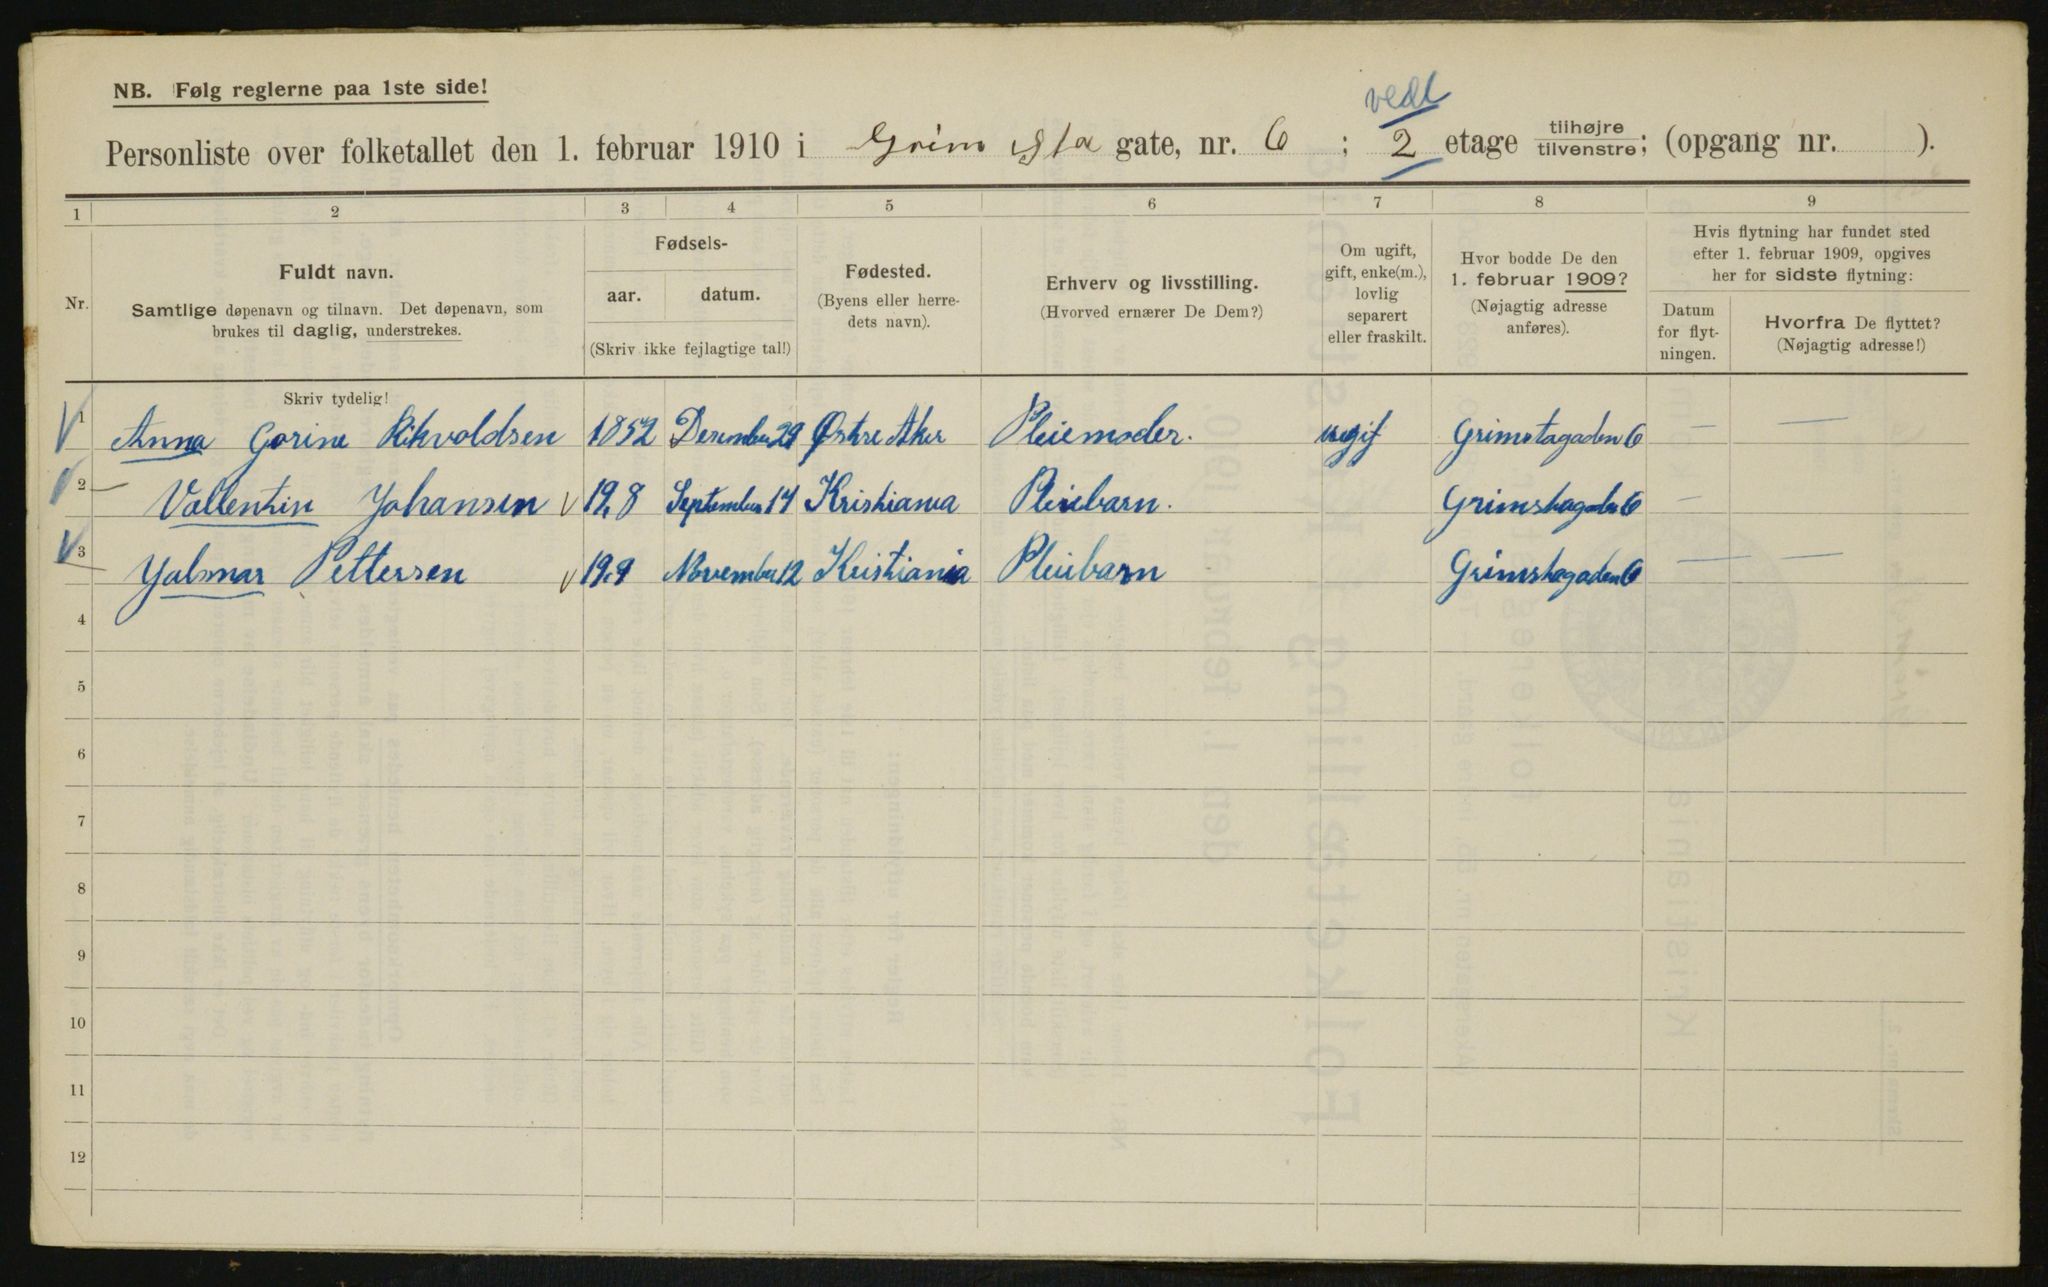 NB. Følg reglerne paa 1ste side!
vedl
Personliste over folketallet den 1. februar 1910 i Grimsta gate, nr. 6 ; 2 etage tilhøjre tilvenstre; (opgang nr. ).
1 2 3 4 5 6 7 8 9
Nr.
Fuldt navn.
Samtlige døpenavn og tilnavn. Det døpenavn, som
brukes til daglig, understrekes.
Fødsels-
aar. datum.
(Skriv ikke fejlagtige tal!)
Fødested.
(Byens eller herre-
dets navn).
Erhverv og livsstilling.
(Hvorved ernærer De Dem?)
Om ugift,
gift, enke(m.),
lovlig
separert
eller fraskilt.
Hvor bodde De den
1. februar 1909?
(Nøjagtig adresse
anføres).
Hvis flytning har fundet sted
efter 1. februar 1909, opgives
her for sidste flytning:
Datum
for flyt-
ningen.
Hvorfra De flyttet?
(Nøjagtig adresse!)
Skriv tydelig!
1 Anna Gorine Rikvoldsen 1852 Desember 29 Østre Aker Pleiemoder. ugif Grimstagaden 6 — —
2 Vallentin Johansen 19,8 September 14 Kristiania Pleiebarn. Grimstagaden 6 —
3 Yalmar Pettersen 19,9 November 12 Kristiania Pleiebarn Grimstagaden 6 — —
4
5
6
7
8
9
10
11
12